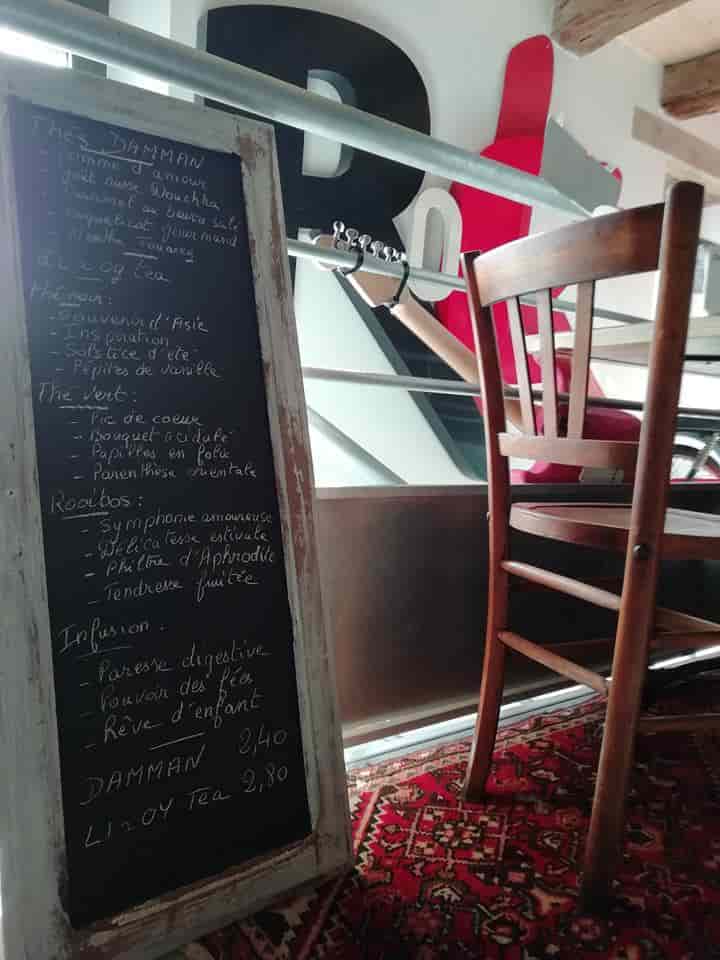 Thés DAMMAN
- pomme d'amour
- goût russe Douchka
- caramel au beurre salé
- coquelicot gourmand
- Menthe Touareg
Li zoy tea
Thé noir:
- Souvenir d'Asie
- Inspiration
- Solstice d'été
- Pépites de vanille
Thé vert:
- Pic de coeur
- Bouquet acidulé
- Papilles en folie
- Parenthèse orientale
Rooibos:
- Symphonie amoureuse
- Délicatesse estivale
- Philtre d'Aphrodite
- Tendresse fruitée
Infusion:
- Paresse digestive
- Pouvoir des fées
- Rêve d'enfant
DAMMAN 2,40
LizOY Tea 2,80